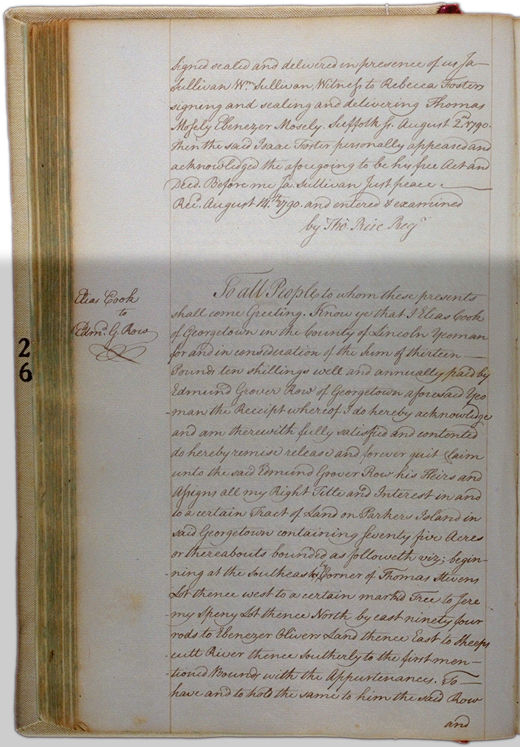 signed sealed and delivered in presence of us Ja
Sullivan Wm Sullivan, Witness to Rebecca Fosters
signing and sealing and delivering Thomas
Mosely Ebenezer Mosely. Suffolk Ss. August 2d. 1790.
then the said Isaac Foster personally appeared and
acknowledged the aforegoing to be his free Act and
Deed. Before me Ja. Sullivan Just peace
Recd. August 14th 1790. and entered & examined
by Tho. Rice Regr
Elias Cook
to
Edmd. G. Row
To all People to whom these presents
shall come Greeting. Know ye that I Elias Cook
of Georgetown in the County of Lincoln Yeoman
for and in consideration of the Sum of thirteen
Pounds ten shillings well and annually paid by
Edmund Grover Row of Georgetown aforesaid Yeo
man the Receipt whereof I do hereby acknowledge
and am therewith fully satisfied and contented
do hereby remise release and forever quit Claim
unto the said Edmund Groover Row his Heirs and
Assigns all my Right Title and Interest in and
to a certain Tract of Land on Parkers Island in
said Georgetown containing seventy five Acres
or thereabouts bounded as followeth viz; begin-
ning at the Southeast Corner of Thomas Stevens
Lot thence west to a certain markd Tree to Jere
my Speny Lot thence North by east ninety four
rods to Ebenezer Olivers Land thence East to Sheeps
cutt River thence Southerly to the first men-
tioned Bounds with the Appurtenances. To
have and to hold the same to him the said Row
and
26